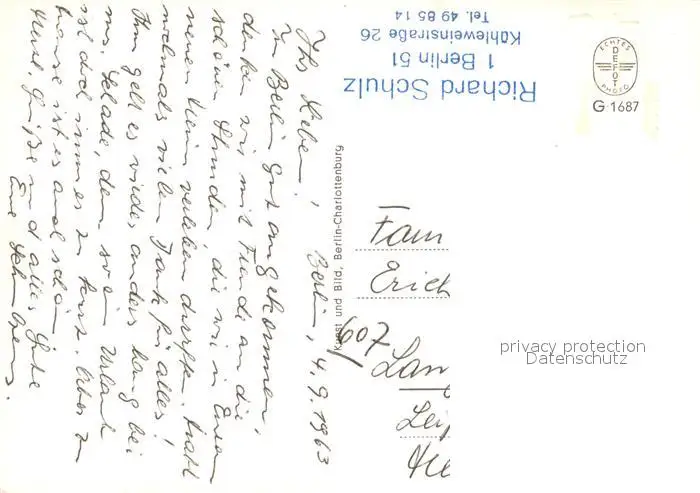 Berlin, 4.9.1963
Ihr Lieben!
In Berlin gut angekommen,
denken wir mit Freude an die
schönen Stunden, die wir in Eurem
neuen Heim verleben durften. Habt
nochmals vielen Dank für alles!
Ihm geht es wieder anders bang bei
uns. Schade, denn so ein Urlaub
ist doch immer zu kurz. Aber zu
Hause ist es auch schön.
Herzl. Grüße und alles Gute
Eure Schulzens.
Richard Schulz
1 Berlin 51
Kühleweinstraße 26
Tel. 49 85 14
Kunst und Bild, Berlin-Charlottenburg
ECHTES
DEFOT
PHOTO
G 1687
Fam
Erich
607
Lan
Lei
privacy protection
Datenschutz